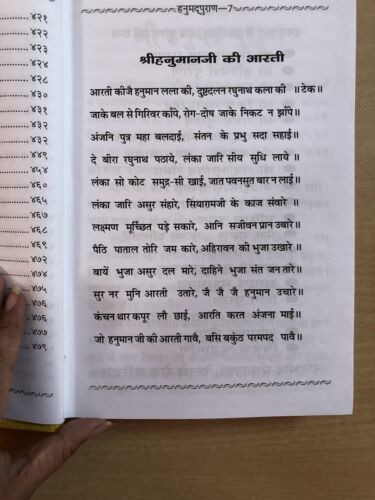 ४२१
४२२
४२४
४२८
४३०
४३१
४३२
४३२
४४९
४५४
४६०
४६५
४६७
४६८
४६९
४७२
४७४
४७५
४७६
४७६
४७७
४७९
हनुमद्पुराण—7
श्रीहनुमानजी की आरती
आरती कीजै हनुमान लला की, दुष्टदलन रघुनाथ कला की ॥टेक॥
जाके बल से गिरिवर काँपे, रोग-दोष जाके निकट न झाँपे॥
अंजनि पुत्र महा बलदाई, संतन के प्रभु सदा सहाई॥
दे बीरा रघुनाथ पठाये, लंका जारि सीय सुधि लाये ॥
लंका सो कोट समुद्र-सी खाई, जात पवनसुत बार न लाई॥
लंका जारि असुर संहारे, सियारामजी के काज संवारे ॥
लक्ष्मण मूर्च्छित पड़े सकारे, आनि सजीवन प्रान उबारे॥
पैठि पाताल तोरि जम कारे, अहिरावन की भुजा उखारे॥
बायें भुजा असुर दल मारे, दाहिने भुजा संत जन तारे॥
सुर नर मुनि आरती उतारे, जै जै जै हनुमान उचारे॥
कंचन थार कपूर लौ छाई, आरति करत अंजना माई॥
जो हनुमान जी की आरती गावै, बसि बकुंठ परमपद पावै॥